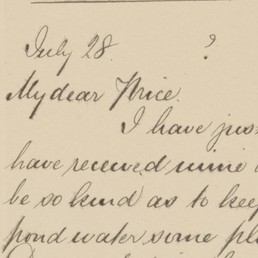 July 28. ?
My dear Price.
I have jus
have received mine
be so kind as to keep
pond water some pl